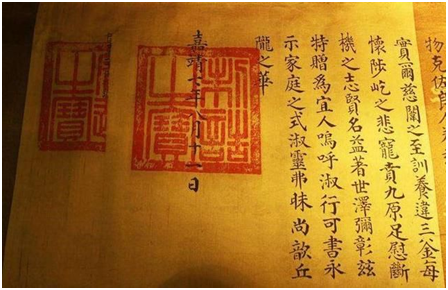 實爾慈闈之至訓養違三釜每
懷陟屺之悲寵賁九原足慰斷
機之志賢名益著世澤彌彰兹
特贈爲宜人嗚呼淑行可書永
示家庭之式淑靈弗昧尚歆丘
隴之華
嘉靖七年八月十一日
制誥
之寶
之寶